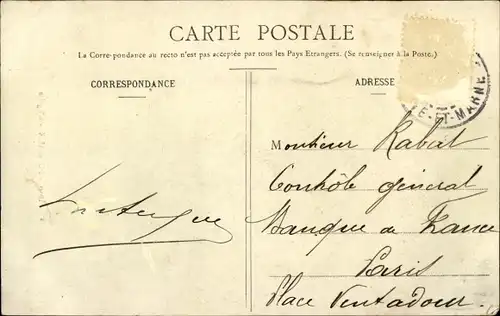 CARTE POSTALE
La Correspondance au recto n'est pas acceptée par tous les Pays Etrangers. (Se renseigner à la Poste.)
CORRESPONDANCE
ADRESSE
E-ET-MARNE
Monsieur Rabat
Contrôle général
Banque de France
Paris
Place Ventadour.